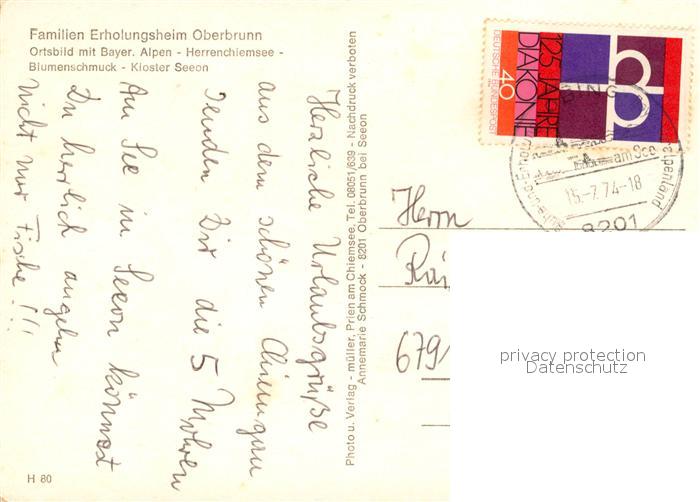 Familien Erholungsheim Oberbrunn
Ortsbild mit Bayer. Alpen - Herrenchiemsee -
Blumenschmuck - Kloster Seeon
Herzliche Urlaubsgrüße
aus dem schönen Chiemgau
senden Dir die 5 Mohren
Am See in Seeon könnest
Du herrlich angeln
nicht nur Fische!!!
H 80
Photo u. Verlag - müller, Prien am Chiemsee, Tel. 08051/639 - Nachdruck verboten
Annemarie Schmock - 8201 Oberbrunn bei Seeon
DEUTSCHE BUNDESPOST
40
125 JAHRE
DIAKONIE
am See
15.-7.74-18
8201
Herrn
Rai
679
privacy protection
Datenschutz